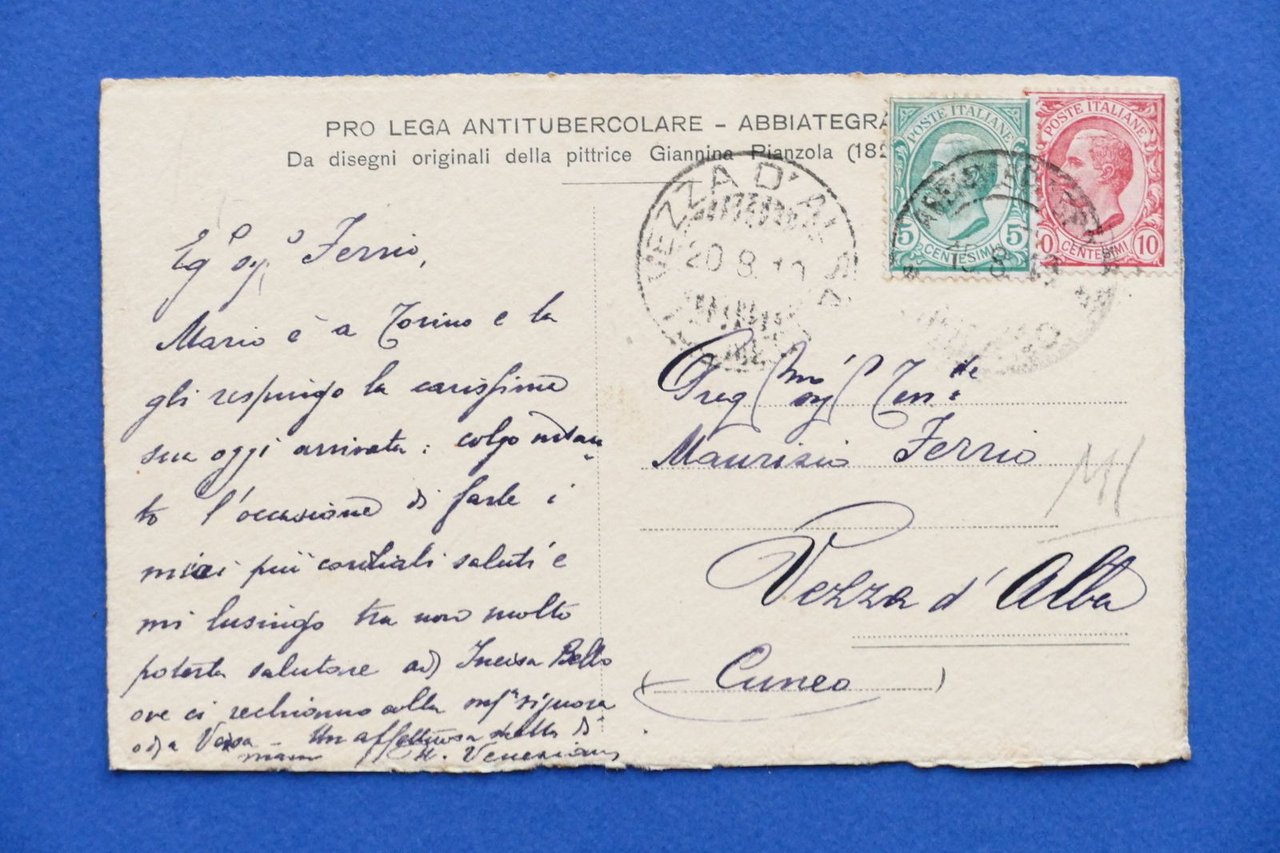 PRO LEGA ANTITUBERCOLARE - ABBIATEGRA
Da disegni originali della pittrice Giannina Pianzola (182
POSTE ITALIANE
5 5
CENTESIMI
POSTE ITALIANE
0 10
CENTESIMI
VEZZA D'ALBA
20.8.19
Eg Sig Ferrio,
Mario è a Torino e la
gli respingo la carissima
sua oggi arrivata: colgo intan
to l'occasione di farle i
miei più cordiali saluti e
mi lusingo tra non molto
poterla salutare ad Incisa Bello
ove ci rechiamo colla signora
Un affettuosa stretta di
mano
Preg Sig Ten
Maurizio Ferrio
Vezza d'Alba
(Cuneo)